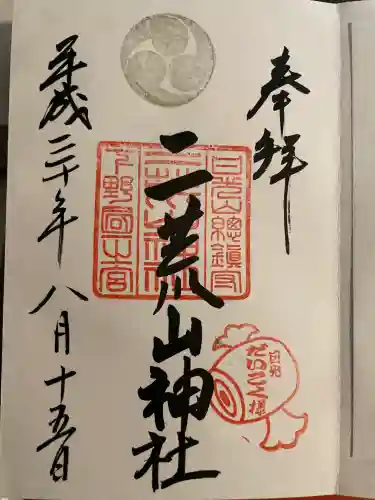 奉拝
二荒山神社
日光山總鎮守
二荒山神社
下野國一之宮
日光
だいこく様
平成三十年八月十五日